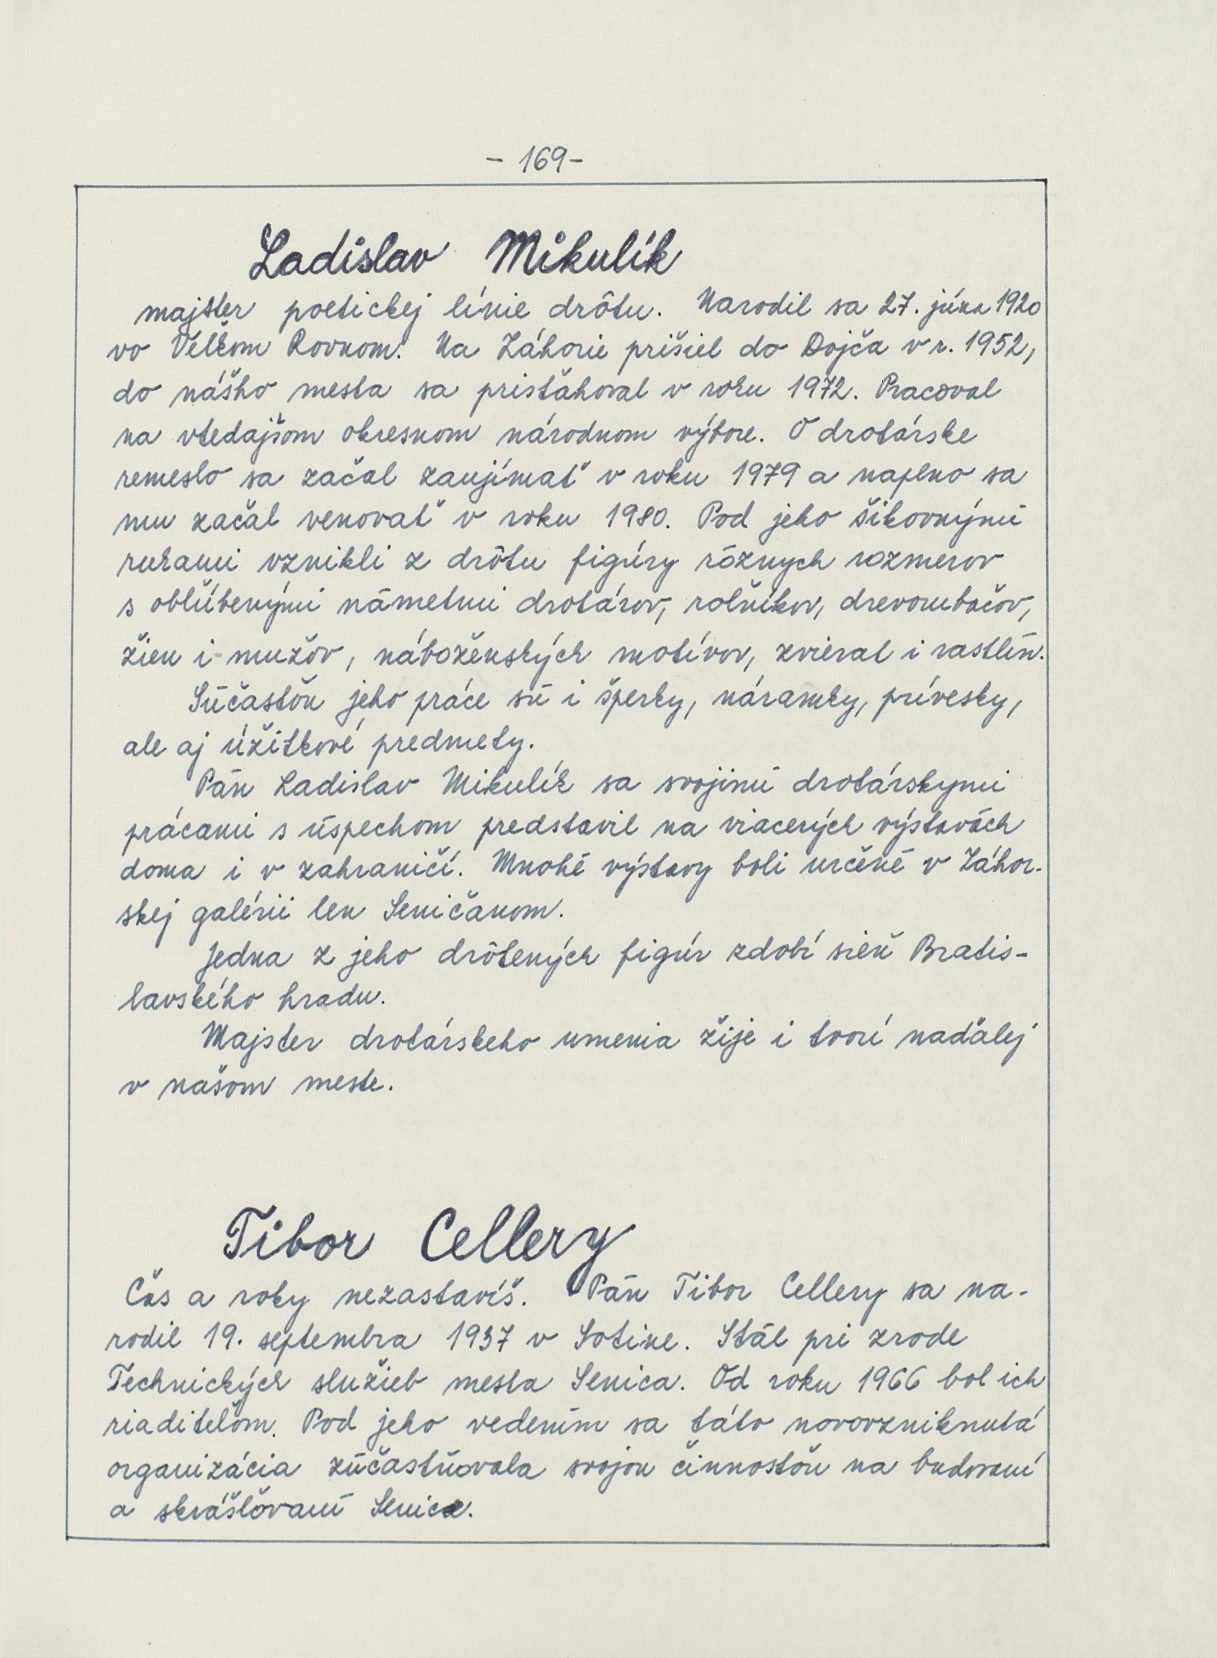 - 169 -
Ladislav Mikulík
majster poetickej línie drôtu. Narodil sa 27. júna 1920
vo Veľkom Rovnom. Na Záhorie prišiel do Dojča v r. 1952,
do nášho mesta sa prisťahoval v roku 1972. Pracoval
na vtedajšom okresnom národnom výbore. O drotárske
remeslo sa začal zaujímať v roku 1979 a naplno sa
mu začal venovať v roku 1980. Pod jeho šikovnými
rukami vznikli z drôtu figúry rôznych rozmerov
s obľúbenými námetmi drotárov, roľníkov, drevorubačov,
žien i mužov, náboženských motívov, zvierat i rastlín.
Súčasťou jeho práce sú i šperky, náramky, prívesky,
ale aj úžitkové predmety.
Pán Ladislav Mikulík sa svojimi drotárskymi
prácami s úspechom predstavil na viacerých výstavách
doma i v zahraničí. Mnohé výstavy boli určené v Záhor-
skej galérii len Seničanom.
Jedna z jeho drôtených figúr zdobí sieň Bratis-
lavského hradu.
Majster drotárskeho umenia žije i tvorí naďalej
v našom meste.
Tibor Cellery
Čas a roky nezastavíš. Pán Tibor Cellery sa na-
rodil 19. septembra 1937 v Sotine. Stál pri zrode
Technických služieb mesta Senica. Od roku 1966 bol ich
riaditeľom. Pod jeho vedením sa táto novovzniknutá
organizácia zúčastňovala svojou činnosťou na budovaní
a skrášľovaní Senice.